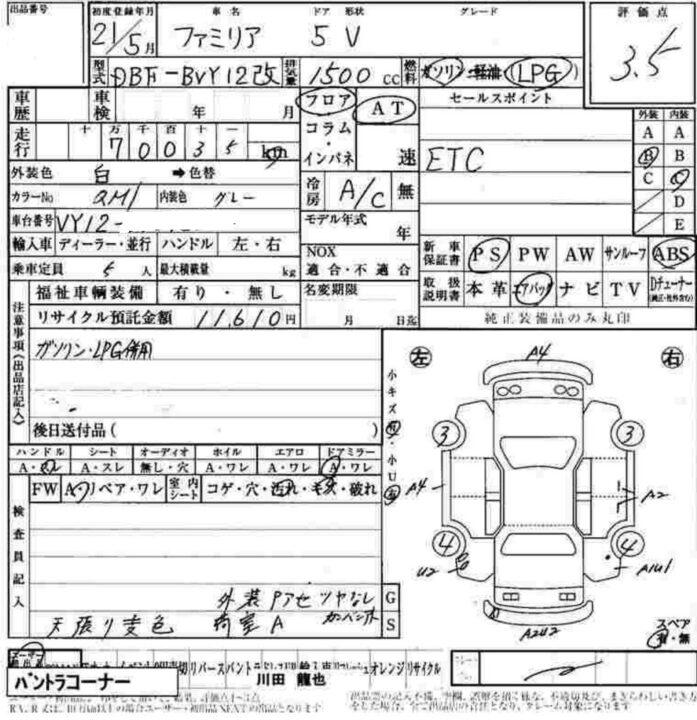 出品番号 初度登録年月 車名 ドア 形状 グレード 評価点
21/5月 ファミリア 5 V 3.5
型式 DBF-BVY12改 排気量 1500 cc 燃料 ガソリン・軽油・LPG
車歴 車検 年 月 フロア AT セールスポイント 外装 内装
走行 十 万 千 百 十 一 コラム・インパネ 速 ETC A A
7 0 0 3 5 km B B
外装色 白 ➡色替 冷房 A/C 無 C C
カラーNo QM1 内装色 グレー D
車台番号 VY12- モデル年式 年 E
輸入車 ディーラー・並行 ハンドル 左・右 NOX 適合・不適合 新車保証書 PS PW AW サンルーフ ABS
乗車定員 5 人 最大積載量 kg
福祉車輌装備 有り・無し 名変期限 月 日迄 取扱説明書 本革 エアバッグ ナビ TV Dチューナー
リサイクル預託金額 11,610円 純正装備品のみ丸印
注意事項(出品店記入)
ガソリン・LPG併用
後日送付品( )
小キズ有・小U有
左 右
A4
3 3
A4 A2
4 4
U2 A1U1
A2U2
スペア 有・無
ハンドル シート オーディオ ホイル エアロ ドアミラー
A・スレ A・スレ 無し・穴 A・ワレ A・ワレ A・ワレ
FW A・リペア・ワレ 室内シート コゲ・穴・汚れ・毛・破れ
検査員記入
外装PアセツヤなしG
天張り変色 荷室A S
バントラコーナー 川田 龍也